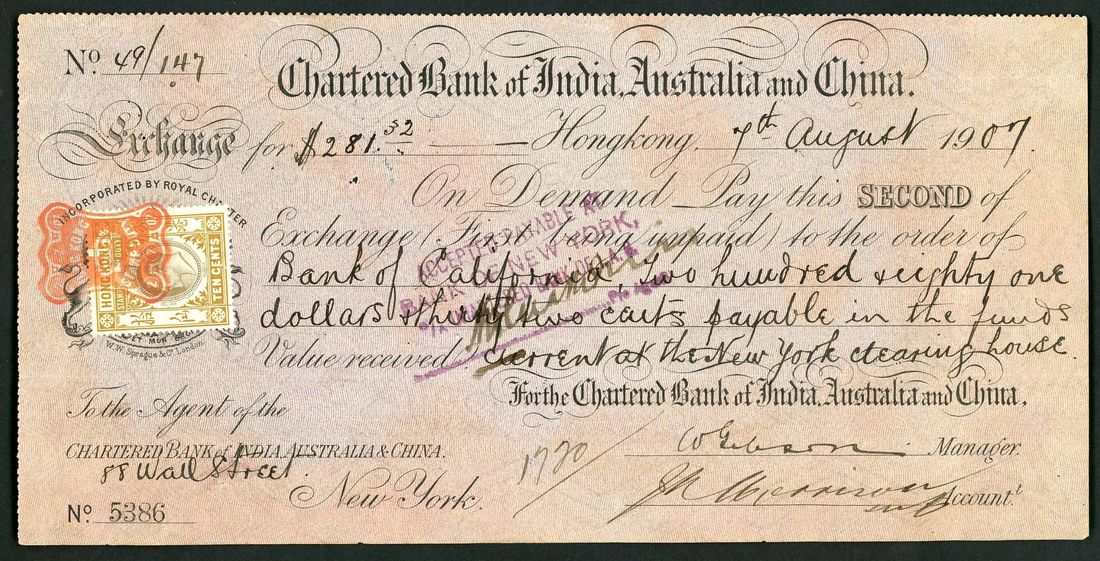 No. 49/147
Chartered Bank of India, Australia and China.
Exchange for $281.32 Hongkong, 7th August 1907.
INCORPORATED BY ROYAL CHARTER
On Demand Pay this SECOND of
Exchange (First being unpaid) to the order of
Bank of California, two hundred & eighty one
dollars & thirty two cents payable in the funds
Value received. current at the New York clearing house.
ACCEPTED PAYABLE AT
NEW YORK,
HONG KONG
STAMP DUTY
TEN CENTS
W.W. Sprague & Co. London
For the Chartered Bank of India, Australia and China.
To the Agent of the
CHARTERED BANK of INDIA, AUSTRALIA & CHINA.
88 Wall Street
New York.
1720/
W Gibson Manager.
Morrison Accountt
No. 5386